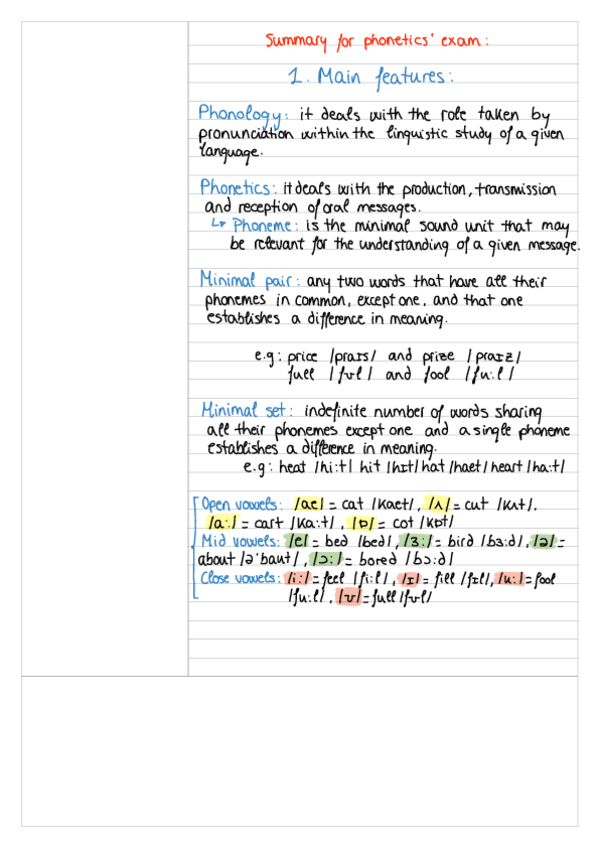 Summary for phonetics' exam:
1. Main features:
Phonology: it deals with the role taken by
pronunciation within the linguistic study of a given
language.
Phonetics: it deals with the production, transmission
and reception of oral messages.
↳ Phoneme: is the minimal sound unit that may
be relevant for the understanding of a given message.
Minimal pair: any two words that have all their
phonemes in common, except one, and that one
establishes a difference in meaning.
e.g: price /praɪs/ and prize /praɪz/
full /fʊl/ and fool /fu:l/
Minimal set: indefinite number of words sharing
all their phonemes except one and a single phoneme
establishes a difference in meaning.
e.g: heat /hi:t/ hit /hɪt/ hat /hæt/ heart /ha:t/
Open vowels: /æ/ = cat /kæt/, /ʌ/ = cut /kʌt/,
/a:/ = cart /ka:t/, /ɒ/ = cot /kɒt/
Mid vowels: /e/ = bed /bed/, /ɜ:/ = bird /bɜ:d/, /ə/ =
about /ə'baut/, /ɔ:/ = bored /bɔ:d/
Close vowels: /i:/ = feel /fi:l/, /ɪ/ = fill /fɪl/, /u:/ = fool
/fu:l/, /ʊ/ = full /fʊl/